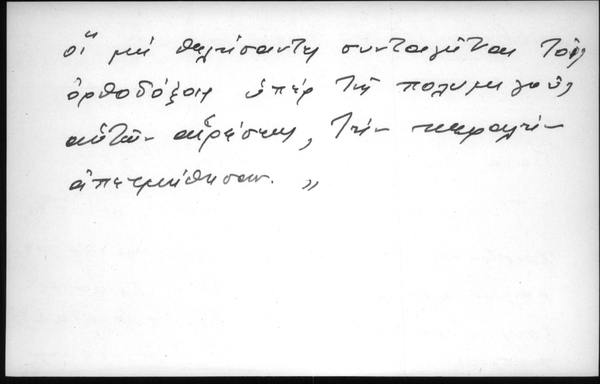 οἳ μὴ θελήσαντες συνταγῆναι τοῖς
ὀρθοδόξοις ὑπὲρ τῆς πολυμιγοῦς
αὐτῶν αἱρέσεως, τὴν κεφαλὴν
ἀπετμήθησαν. „